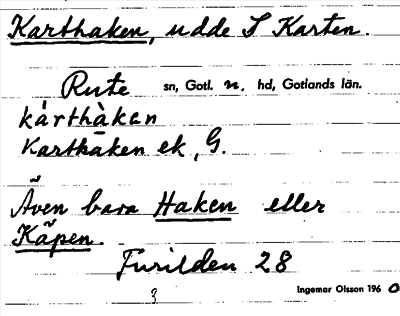 Karthaken, udde S Karten.
Rute sn, Gotl. n. hd, Gotlands län.
kàrthàkan
Karthāken ek, G.
Även bara Haken eller
Kåpen.
Furilden 28
3
Ingemar Olsson 1960